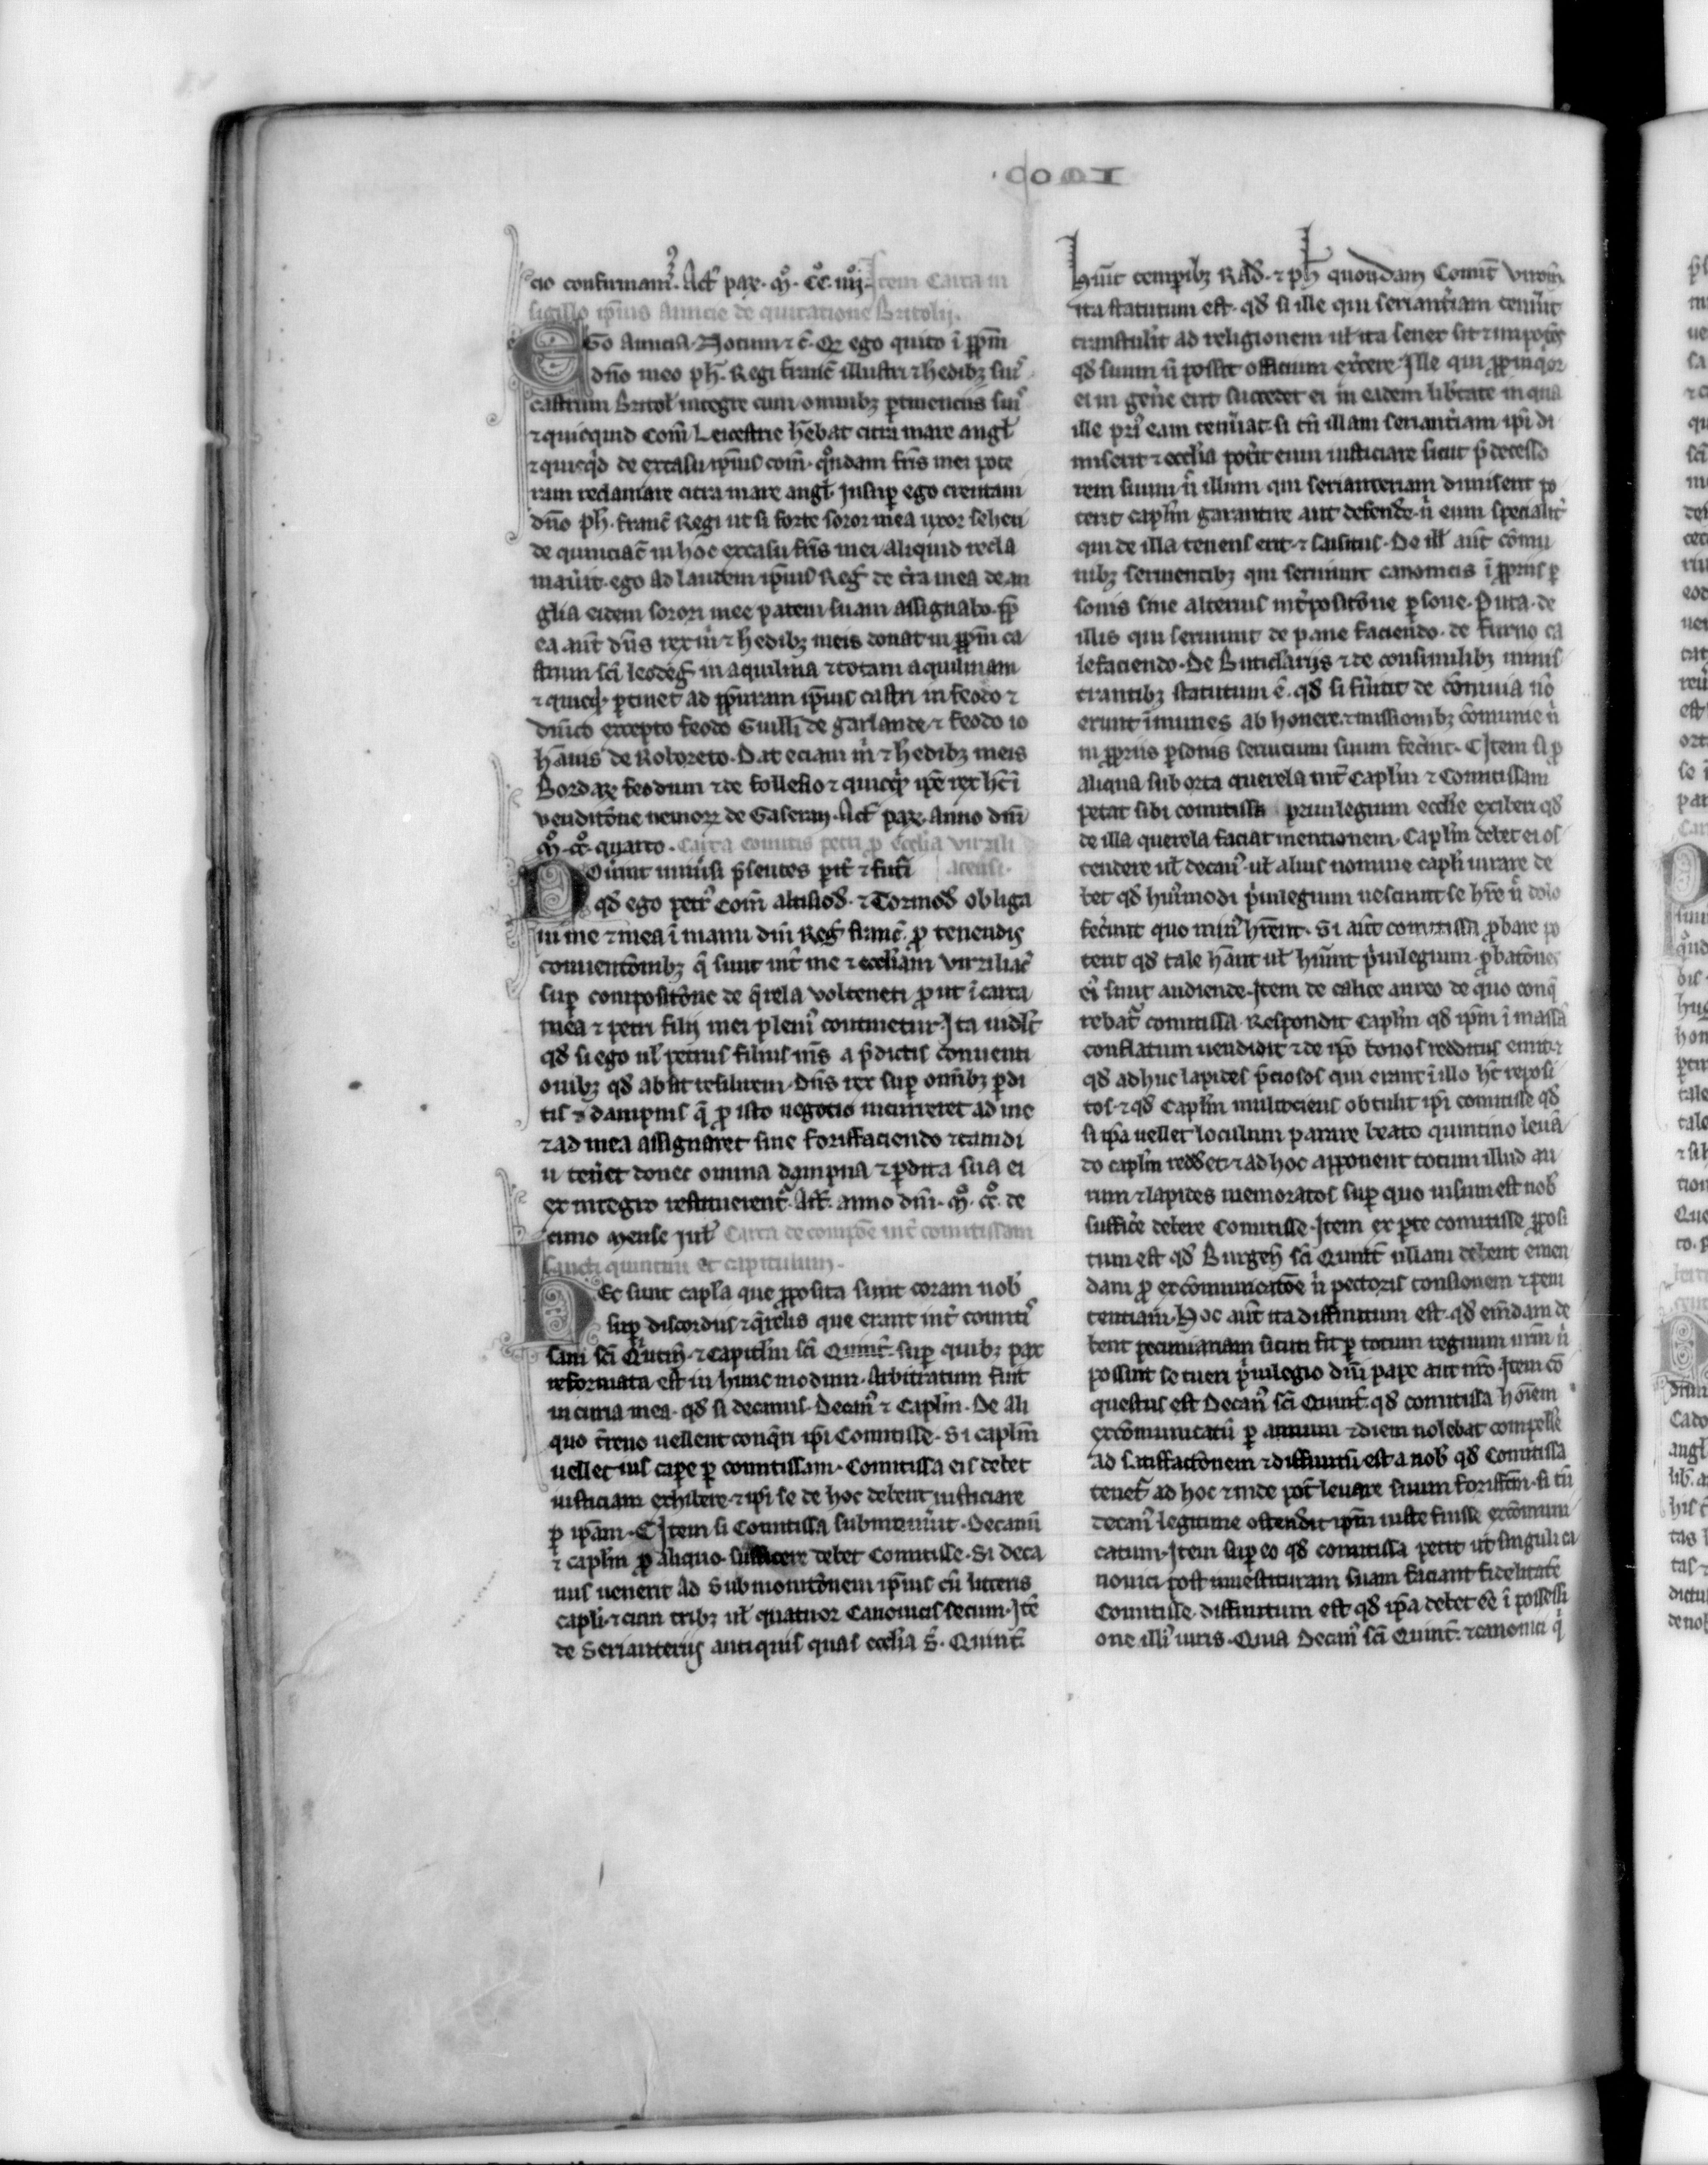 cio confirmam᷒. Act̄ par. mº. ccº. iiijº. Item Carta in
sigillo ip̄ius Amicie de quitatione Britolij.
EGo Amicia. Notum ⁊ c̄. Qꝫ ego quito ī ꝑpm̄
dn̄o meo ph̄. Regi franc̄ illustri ⁊ hedibꝫ suis
castrum Britol̄ integre cum omnibꝫ ꝑtinenciis suis
⁊ quicquid Com̄ Leicestrie hēbat citra mare angl̄
⁊ quicq̄d de excasu ip̄ius com̄. qͦndam fr̄is mei pote
ram reclamare citra mare angl̄. Insuꝑ ego creantaui
dn̄o ph̄. franc̄ Regi ut si forte soror mea uxor seheri
de quinciac̄ in hoc excasu fr̄is mei aliquid recla
mau̾it. ego ad laudem ip̄ius Reḡ de t̾ra mea de an
glia eidem sorori mee partem suam assignabo. ꝓp̄
ea aut̄ dn̄s rex m̄ ⁊ hedibꝫ meis donat in ꝑpm̄ ca
strum sc̄i leodeg̾ in aquilina ⁊ totam aquilinam
⁊ quicq̄d ꝑtinet ad ꝑp̄turam ip̄ius castri in feodo ⁊
dn̄ico excepto feodo Guill̄i de garlande. ⁊ feodo io
hānis de Roboreto. Dat eciam m̄ ⁊ hedibꝫ meis
Bordar feodum ⁊ de follesio ⁊ quicq̄d ip̄e rex h̄t ī
venditōne nemoꝝ de Gaseran. Act̄ par. Anno dn̄i
mº. ccº. quarto. Carta comitis petri ꝓ eccl̄ia virzili
acensi.
NOu̾int uniu̾si p̄sentes pit̾ ⁊ fut̄i
qd̄ ego petr᷒ Com̄ altisiod̄. ⁊ Tornod̄ obliga
ui me ⁊ mea ī manu dn̄i Reḡ franc̄. ꝓ tenendis
conuentōnibꝫ q̄ sunt int̾ me ⁊ eccl̄iam virziliac̄
suꝑ compositōne de q̾rela volteneti ꝓut ī carta
mea ⁊ petri filij mei pleni᷒ continetur. Ita uidl̄ꝫ
qd̄ si ego ul̄ petrus filius m̄s a p̄dictis conuenti
onibꝫ qd̄ absit resilirem. dn̄s rex suꝑ om̄ibꝫ ꝑdi
tis ⁊ dampnis q̄ ꝓ isto negotio incurreret ad me
⁊ ad mea assignaret sine foriffaciendo ⁊ tamdi
u ten̾et donec omnia dampna ⁊ ꝑdita sua ei
ex integro restituerent̾. Act̄. anno dn̄i. mº. ccº. de
cimo mense Jul̄ Carta de compōe int̾ comitissam
sancti quintini et capitulum.
HEc sunt capl̄a que ꝓposita sunt coram nob᷒
suꝑ discordiis ⁊ q̾relis que erant int̾ comiti᷒
sam sc̄i Quitin̄. ⁊ Capitl̄m sc̄i Quint̄. suꝑ quibꝫ pax
reformata est in hunc modum. Arbitratum fuit
in curia mea. qd̄ si decanus. Decan᷒ ⁊ Capl̄m. De ali
quo t̾reno uellent conq̾ri ip̄i Comitisse. Si capl̄m
uellet ius capꝑe ꝑ comitissam. Comitissa eis debet
iusticiam exhibere. ⁊ ip̄i se de hoc debent iusticiare
ꝑ ip̄am. Item si Comitissa submonu̾it. Decanū
⁊ capl̄m ꝓ aliquo. sufficere debet Comitisse. Si deca
nus uenerit ad submonitōnem ip̄ius cū litteris
capl̄i. ⁊ cum tribꝫ ul̄ quatuor Canonicis secum. Itē
de Serianteriis antiquis quas eccl̄ia S̄. Quint̄.
huīt temporibꝫ Rad̄. ⁊ ph̄ quondam Comit̄ virom̄
ita statutum est. qd̄ si ille qui seriant̾iam tenu̾it
transtul̾it ad religionem ul̄ ita senex sit ⁊ impotēs
qd̄ suum n̄ possꝫ officium ex̾cere. Ille qui ꝓpinqͦor
ei in gen̾e erit succedet ei in eadem lib̾tate in qua
ille pri᷒ eam tenu̾at. si tn̄ illam seriant̾iam ip̄i di
miserit ⁊ eccl̄ia pot̾it eum iusticiare sicut p̄decesso
rem suum n̄ illum qui serianteriam dimiserit po
terit capl̄m garantire aut defend̾e. n̄ eum specialit̾
qui de illa tenens erit. ⁊ saisitus. De ill̄ aut̄ cōmu
nibꝫ seruientibꝫ qui seruiunt canonicis ī ꝓpriis ꝑ
sonis sine alterius int̾positōne ꝑsone. Puta. de
illis qui seruiunt de pane faciendo. de furno ca
lefaciendo. De Buticlariis ⁊ de consimilibꝫ minis
trantibꝫ statutum ē. qd̄ si fu̾int de cōmunia nō
erunt īmunes ab honere. ⁊ missionibꝫ cōmunie n̄
in ꝓpriis ꝑsonis seruicium suum fec̾int. Item si ꝓ
aliqua sub orta querela int̾ Capl̄m ⁊ Comitissam
petat sibi comitissa priuilegium eccl̄ie exiberi qd̄
de illa querela faciat mentionem. Capl̄m debet ei os
tendere ul̄ decan᷒. ul̄ alius nomine capl̄i iurare de
bet qd̄ hui᷒modi p̾uilegium nesciunt se hr̄e n̄ dolo
fec̾int quo min᷒ hr̄ent. Si aut̄ comitissa ꝓbare po
terit qd̄ tale hānt ul̄ huīnt p̾uilegium. ꝓbatōnes
ei᷒ sunt audiende. Item de calice aureo de quo conq̄
rebat̾ comitissa. Respondit Capl̄m qd̄ ip̄m ī massā
conflatum uendidit ⁊ de ip̄o bonos redditus emit. ⁊
qd̄ adhuc lapides p̄ciosos qui erant ī illo h̄t reposi
tos. ⁊ qd̄ Capl̄m multociens obtulit ip̄i comitisse qd̄
si ip̄a uellet loculum parare beato quintino leuā
do capl̄m redd̾et. ⁊ ad hoc apponerent totum illud au
rum ⁊ lapides memoratos suꝑ quo uisum est nob᷒
suffic̾e debere Comitisse. Item ex ꝑte comitisse ꝓposi
tum est qd̄ Burgēs sc̄i Quint̄ nllam debent emen
dam ꝓ excōmunicatōe n̄ pectoris tonsionem ⁊ peni
tentiam. Hoc aut̄ ita diffinitum est. qd̄ em̄dam de
bent pecuniariam sicuti fit ꝑ totum regnum nr̄m n̄
possint se tueri p̾uilegio dn̄i pape aut nr̄o. Item cō
questus est Decan᷒ sc̄i Quint̄. qd̄ comitissa hoīem
excōmunicatū ꝑ annum ⁊ diem nolebat compelle
ad satisfactōnem ⁊ diffinitū est a nob᷒ qd̄ Comitissa
tenet̾ ad hoc ⁊ inde pot̾ leuare suum foriffcm̄. si tn̄
decan᷒ legitime ostend̾it ip̄m iuste fuisse excōmuni
catum. Item suꝑ eo qd̄ comitissa petit ut singuli ca
nonici post inuestituram suam faciant fidelitatē
Comitisse. diffinitum est qd̄ ip̄a debet eē ī possessi
one illi᷒ iuris. Quia Decan᷒ sc̄i Quint̄. ⁊ canonici q̾